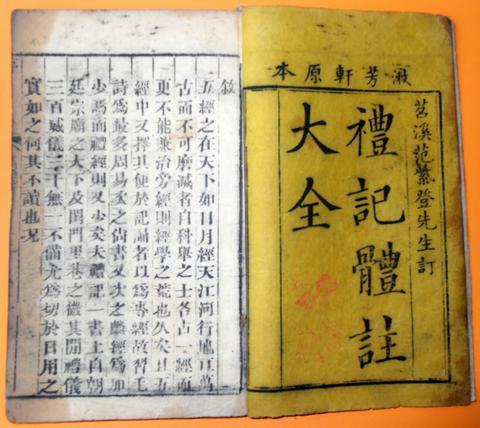 漱芳軒原本
苕溪范紫登先生訂
禮記體註
大全
敘
五經之在天下如日月經天江河行地亘萬
古而不可磨滅者自科舉之士各占一經而
更不能兼治旁經則經學之荒也久矣且五
經中又擇其便於記誦者以爲專經故習毛
詩爲最多周易次之尚書又次之麟經爲加
少焉而禮經則又少矣夫禮記一書上自朝
廷宗廟之大下及閨門里巷之微其間禮儀
三百威儀三千無一不備尤爲切於日用之
實如之何其不讀也況